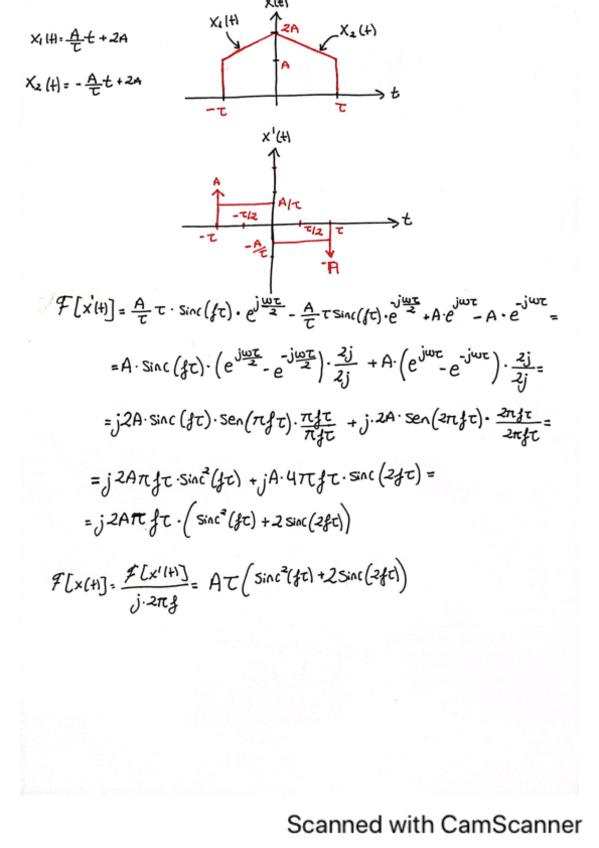 x(t)
x₁(t)
2A
x₂(t)
x₁(t)=A/τ t+2A
A
x₂(t)=-A/τ t+2A
t
-τ
τ
x'(t)
A
A/τ
-τ/2
t
-τ
τ/2
τ
-A/τ
-A
F[x'(t)]=A/τ τ·sinc(fτ)·e^(jωτ/2)-A/τ τ sinc(fτ)·e^(-jωτ/2)+A·e^(jωτ)-A·e^(-jωτ)=
=A·sinc(fτ)·(e^(jωτ/2)-e^(-jωτ/2))·2j/2j+A·(e^(jωτ)-e^(-jωτ))·2j/2j=
=j2A·sinc(fτ)·sen(πfτ)·πfτ/πfτ+j·2A·sen(2πfτ)·2πfτ/2πfτ=
=j2Aπfτ·sinc²(fτ)+jA·4πfτ·sinc(2fτ)=
=j2Aπfτ·(sinc²(fτ)+2sinc(2fτ))
F[x(t)]=F[x'(t)]/j·2πf=Aτ(sinc²(fτ)+2sinc(2fτ))
Scanned with CamScanner